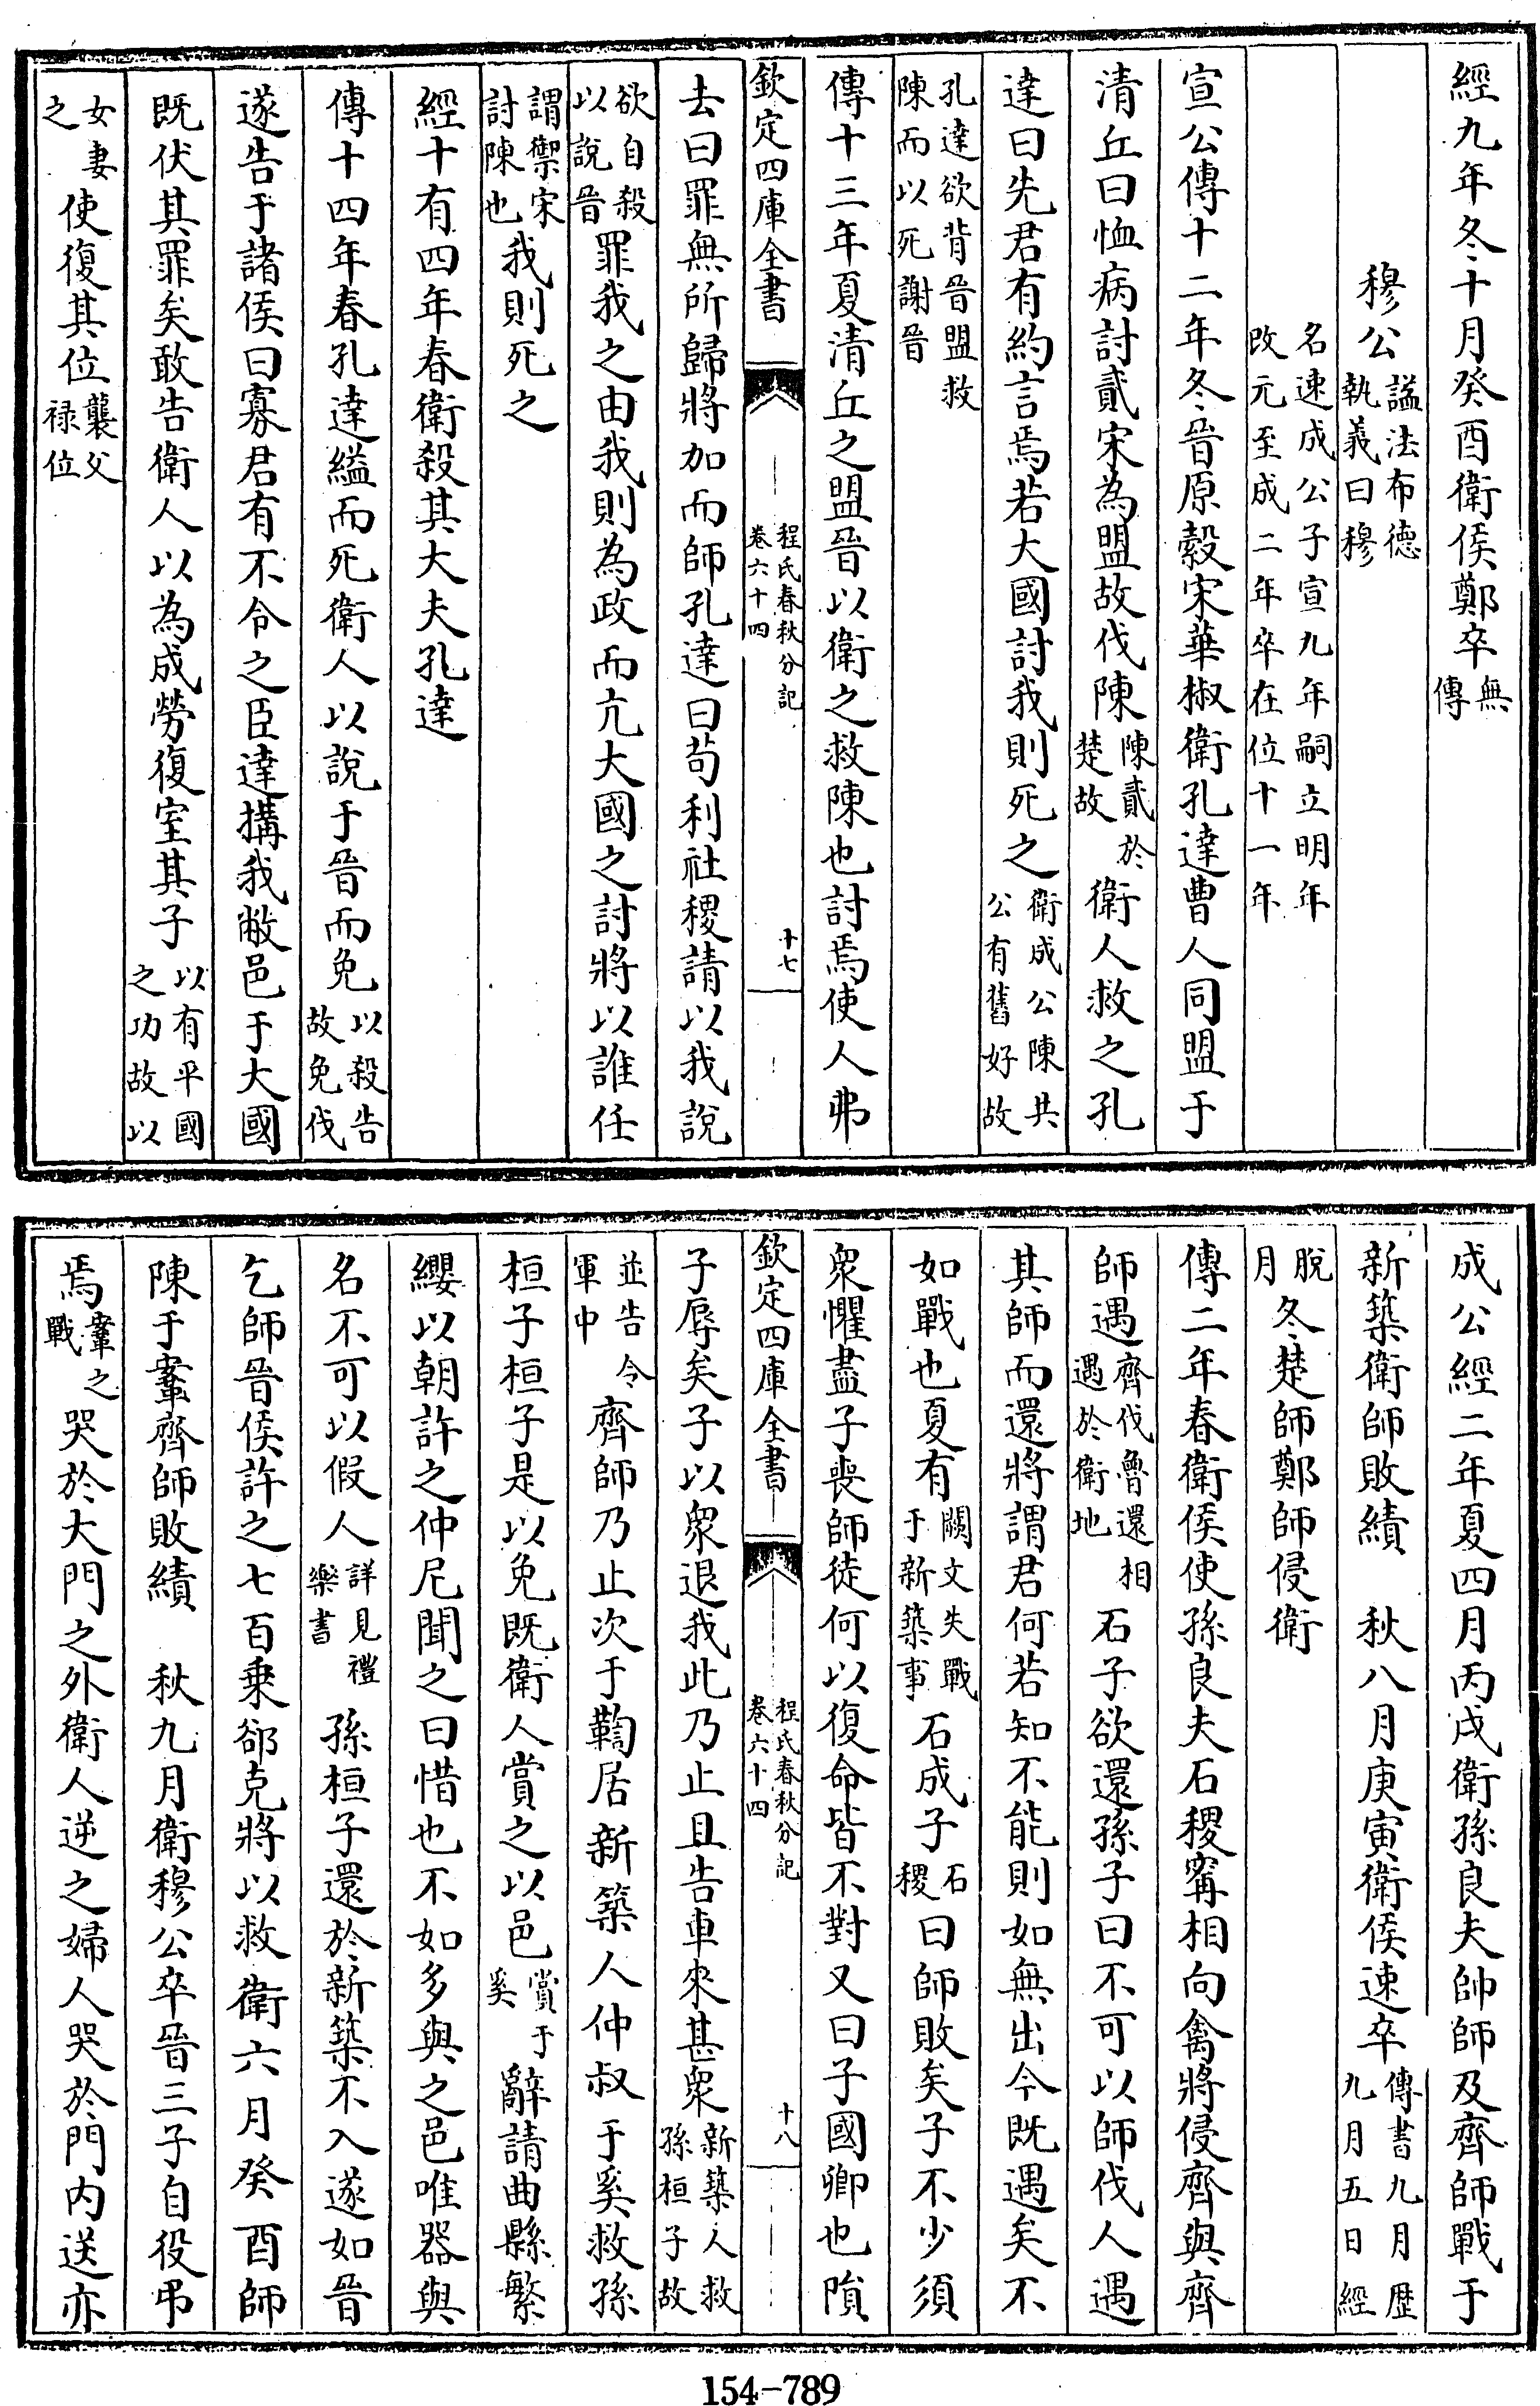 經九年冬十月癸酉衛侯鄭卒無傳
穆公謚法布德執義曰穆
名速成公子宣九年嗣立明年改元至成二年卒在位十一年
宣公傳十二年冬晉原縠宋華椒衛孔達曹人同盟于
清丘曰恤病討貳宋為盟故伐陳陳貳於楚故衛人救之孔
達曰先君有約言焉若大國討我則死之衛成公陳共公有舊好故
孔達欲背晉盟救陳而以死謝晉
傳十三年夏清丘之盟晉以衛之救陳也討焉使人弗
欽定四庫全書
程氏春秋分記
卷六十四
十七
去曰罪無所歸將加而師孔達曰苟利社稷請以我說
欲自殺以說晉罪我之由我則為政而亢大國之討將以誰任
謂禦宋討陳也我則死之
經十有四年春衛殺其大夫孔達
傳十四年春孔達縊而死衛人以說于晉而免以殺告故免伐
遂告于諸侯曰寡君有不令之臣達搆我敝邑于大國
既伏其罪矣敢告衛人以為成勞復室其子以有平國之功故以
女妻之使復其位襲父祿位
成公經二年夏四月丙戌衛孫良夫帥師及齊師戰于
新築衛師敗績 秋八月庚寅衛侯速卒傳書九月歷九月五日經
脫月冬楚師鄭師侵衛
傳二年春衛侯使孫良夫石稷甯相向禽將侵齊與齊
師遇齊伐魯還相遇於衛地石子欲還孫子曰不可以師伐人遇
其師而還將謂君何若知不能則如無出今既遇矣不
如戰也夏有闕文失戰于新築事石成子石稷曰師敗矣子不少須
衆懼盡子喪師徒何以復命皆不對又曰子國卿也隕
欽定四庫全書
程氏春秋分記
卷六十四
十八
子辱矣子以衆退我此乃止且告車來甚衆新築人救孫桓子故
並告令軍中齊師乃止次于鞫居新築人仲叔于奚救孫
桓子桓子是以免既衛人賞之以邑賞于奚辭請曲縣繁
纓以朝許之仲尼聞之曰惜也不如多與之邑唯器與
名不可以假人詳見禮樂書孫桓子還於新築不入遂如晉
乞師晉侯許之七百乗郤克將以救衛六月癸酉師
陳于鞌齊師敗績 秋九月衛穆公卒晉三子自役弔
焉鞌之戰哭於大門之外衛人逆之婦人哭於門内送亦
154-789